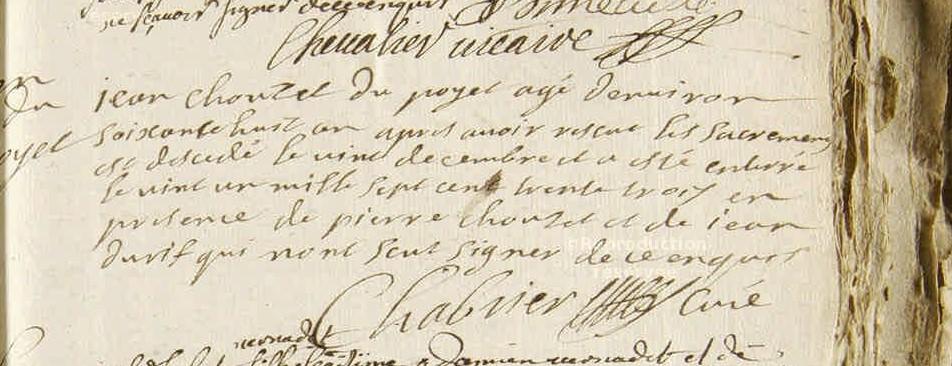 ne sçavoir signer de ce enquis
Chevalier vicaire
jean chouzet du poyet agé denviron
soixante huit an apres avoir rescut les sacremens
est descedé le vint decembre et a esté enterré
le vint un mille sept cent trente trois en
presence de pierre chouzet et de jean
durif qui nont seut signer de ce enquis
Chabrier Curé
©Reproduction
réservée